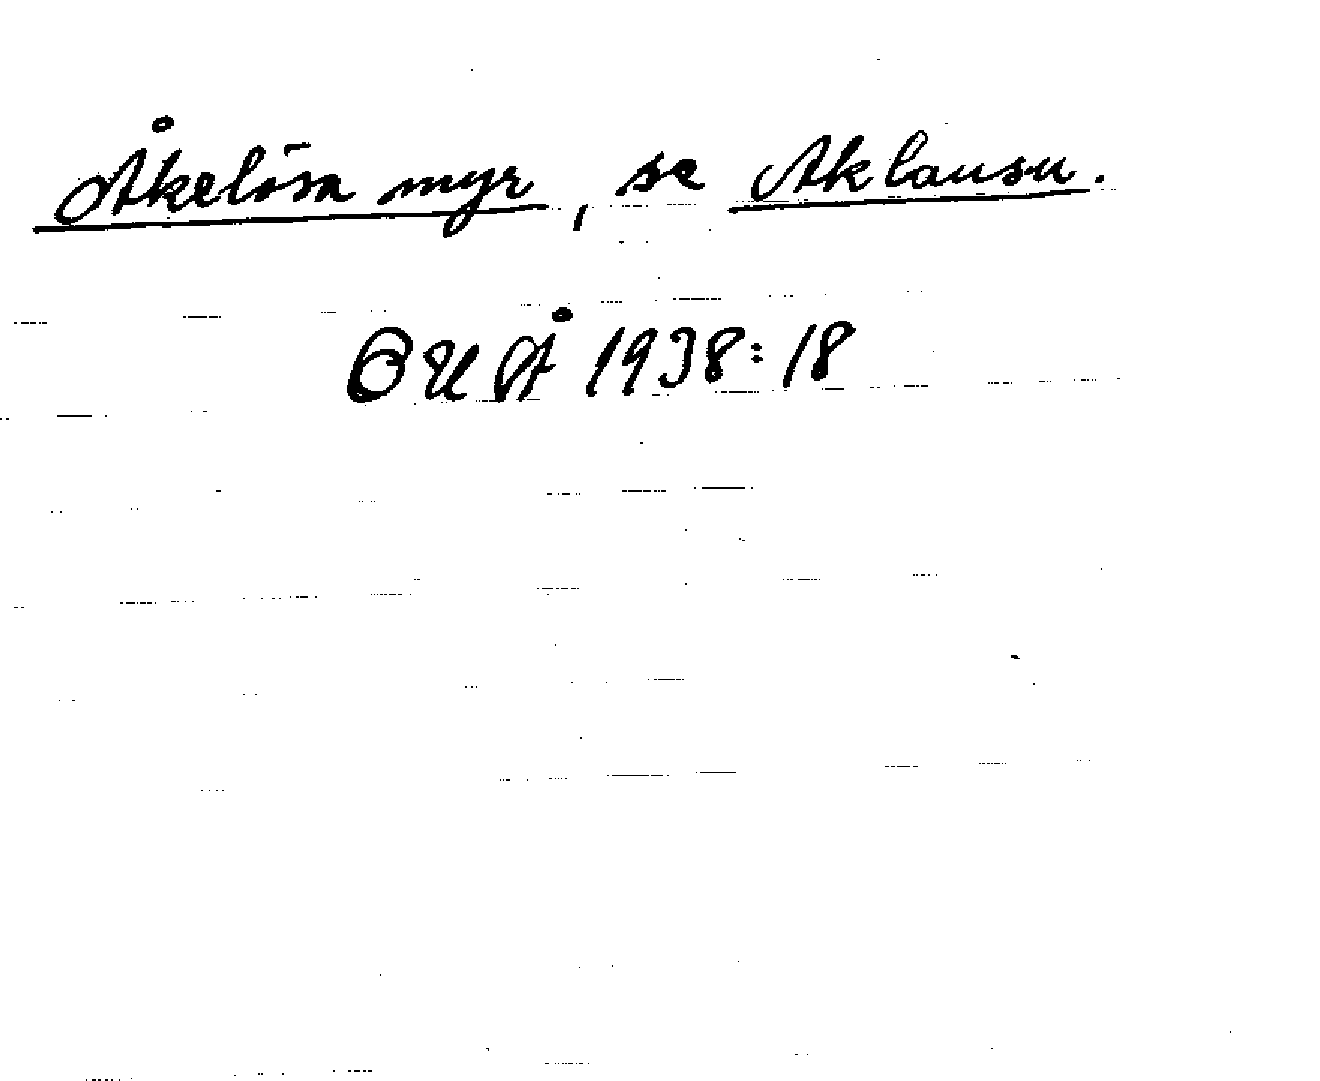 Åkelösa myr, se Aklausu.
OUÅ 1938:18